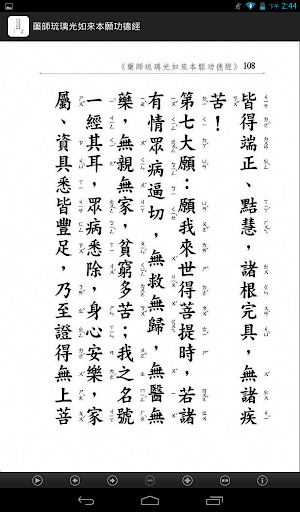 2:44
藥師琉璃光如來本願功德經
《藥師琉璃光如來本願功德經》 108
皆得端正、黠慧，諸根完具，無諸疾
苦！
第七大願：願我來世得菩提時，若諸
有情眾病逼切，無救無歸，無醫無
藥，無親無家，貧窮多苦；我之名號
一經其耳，眾病悉除，身心安樂，家
屬、資具悉皆豐足，乃至證得無上菩